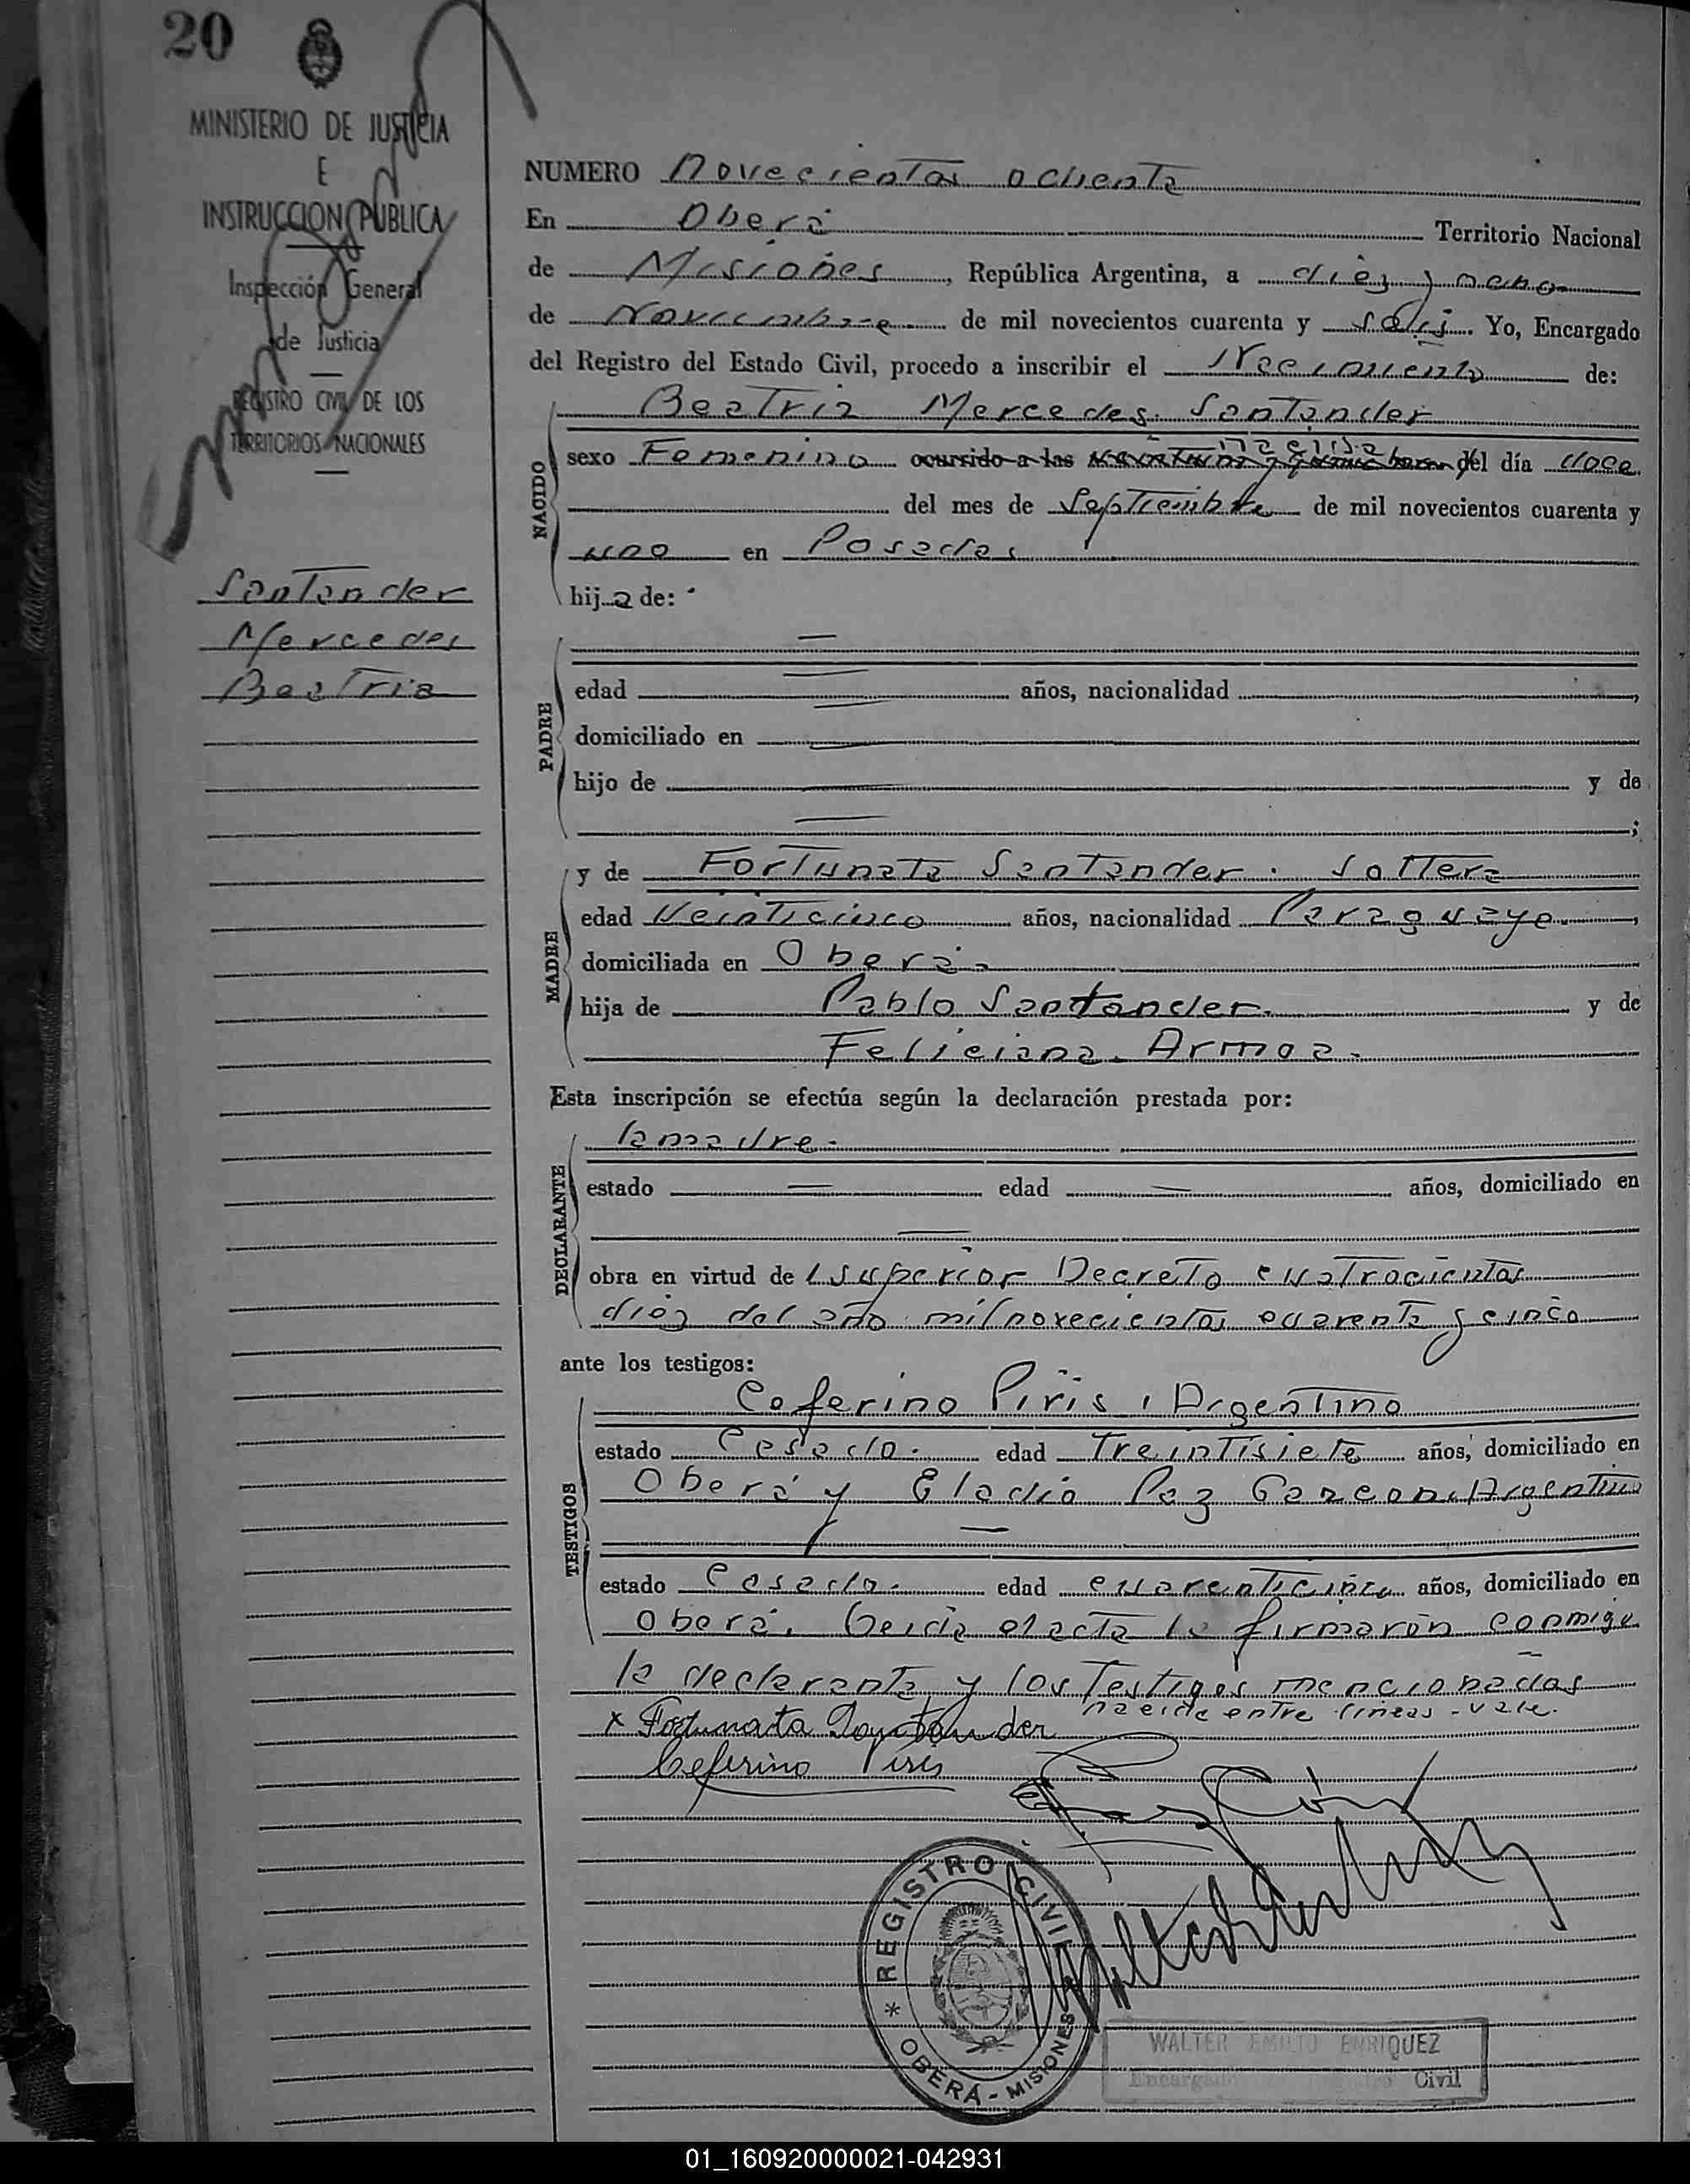 20
MINISTERIO DE JUSTICIA
E
INSTRUCCION PUBLICA
Inspección General
de Justicia
REGISTRO CIVIL DE LOS
TERRITORIOS NACIONALES
Santander
Mercedes
Beatriz
NUMERO Novecientos ochenta
En Oberá Territorio Nacional
de Misiones, República Argentina, a diez y ocho
de Noviembre de mil novecientos cuarenta y seis. Yo, Encargado
del Registro del Estado Civil, procedo a inscribir el nacimiento de:
NACIDO
Beatriz Mercedes Santander
nacida
sexo Femenino ocurrido a las horas del día doce
del mes de Septiembre de mil novecientos cuarenta y
uno en Posadas
hija de:
PADRE
edad años, nacionalidad ,
domiciliado en
hijo de y de
;
MADRE
y de Fortunata Santander. Soltera
edad Veinticinco años, nacionalidad Paraguaya,
domiciliada en Oberá.
hija de Pablo Santander. y de
Feliciana Armoa.
Esta inscripción se efectúa según la declaración prestada por:
DECLARANTE
la madre.
estado edad años, domiciliado en
obra en virtud de Superior Decreto cuatrocientos
diez del año mil novecientos cuarenta y cinco
ante los testigos:
TESTIGOS
Ceferino Piris, Argentino
estado Casado. edad Treintisiete años, domiciliado en
Oberá y Eladio Paz Garzon, Argentino
estado Casado. edad cuarenticinco años, domiciliado en
Oberá. Leida el acta la firmarón conmigo
la declarante y los Testigos mencionados
nacida entre lineas - vale.
x Fortunata Santander
Ceferino Piris
REGISTRO CIVIL
* OBERÁ - MISIONES
WALTER EMILIO ENRIQUEZ
Encargado Civil
01_160920000021-042931